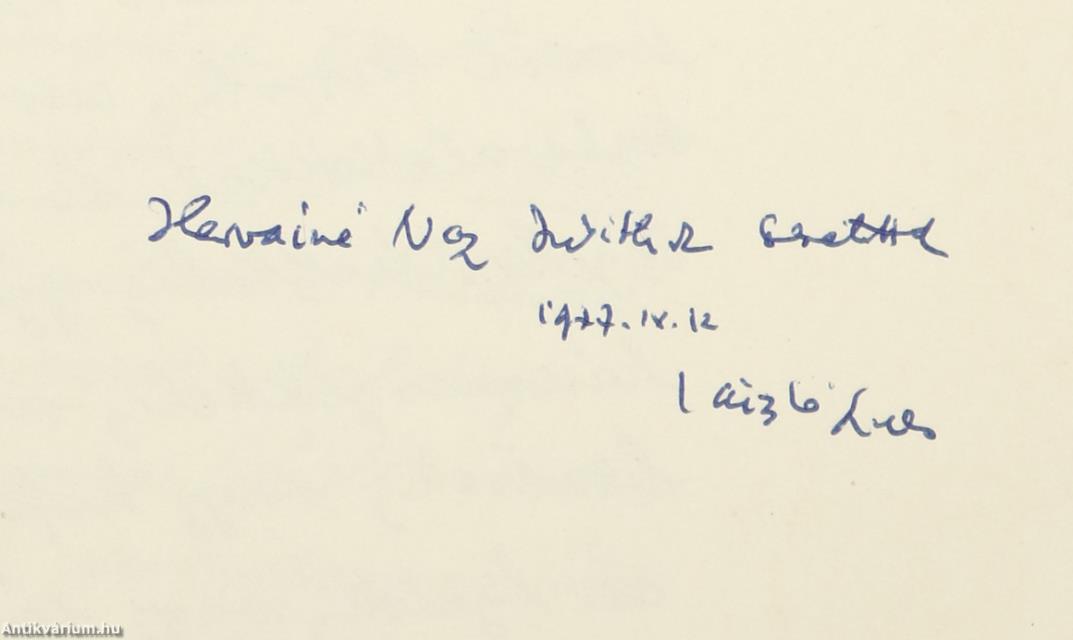 Hervainé Nagy Judithnak szeretettel
1977. IX. 12
László Lajos
Antikvárium.hu